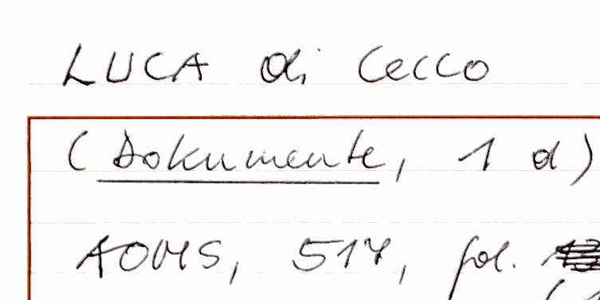 LUCA di Cecco
(Dokumente, 1 d)
AOMS, 517, fol.